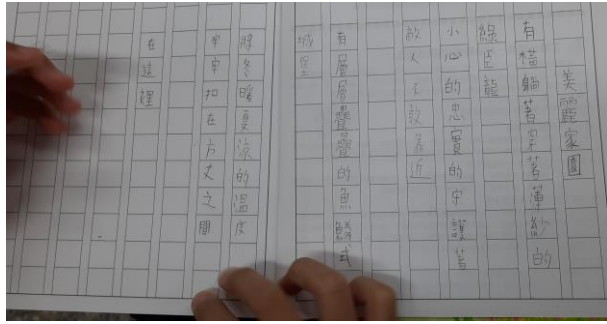 美麗家園
有檔躺著穿著薄紗的
綠巨龍
小心的忠實的守護著
敵人不敢靠近
有層層疊疊的魚鱗式
城堡
將冬暖夏涼的溫度
牢牢扣在方丈之間
在這裡